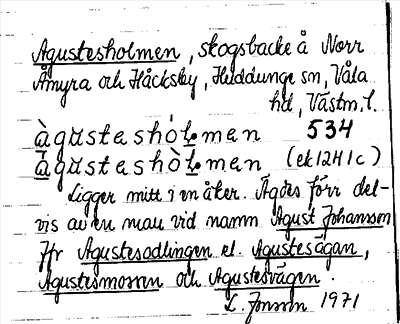 Agustesholmen, skogsbacke å Norr
Åmyra och Håcksby, Huddunge sn, Våla
hd, Västm. l.
àgustashòlmen 534
àgustashòlmen (ek 12H1c)
Ligger mitt i en åker. Ägdes förr del-
vis av en man vid namn Agust Johansson
Jfr Agustesodlingen el. Agustesägan,
Agustesmossen och Agustesvägen.
L. Jonsson 1971